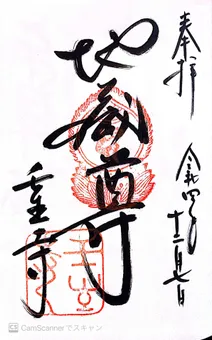 奉拝
令和四年十二月七日
地蔵尊
壬生寺
CamScannerでスキャン